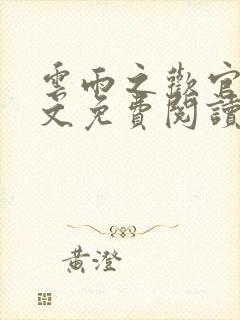 雲雨之歡官
文免費閱讀
黃澄